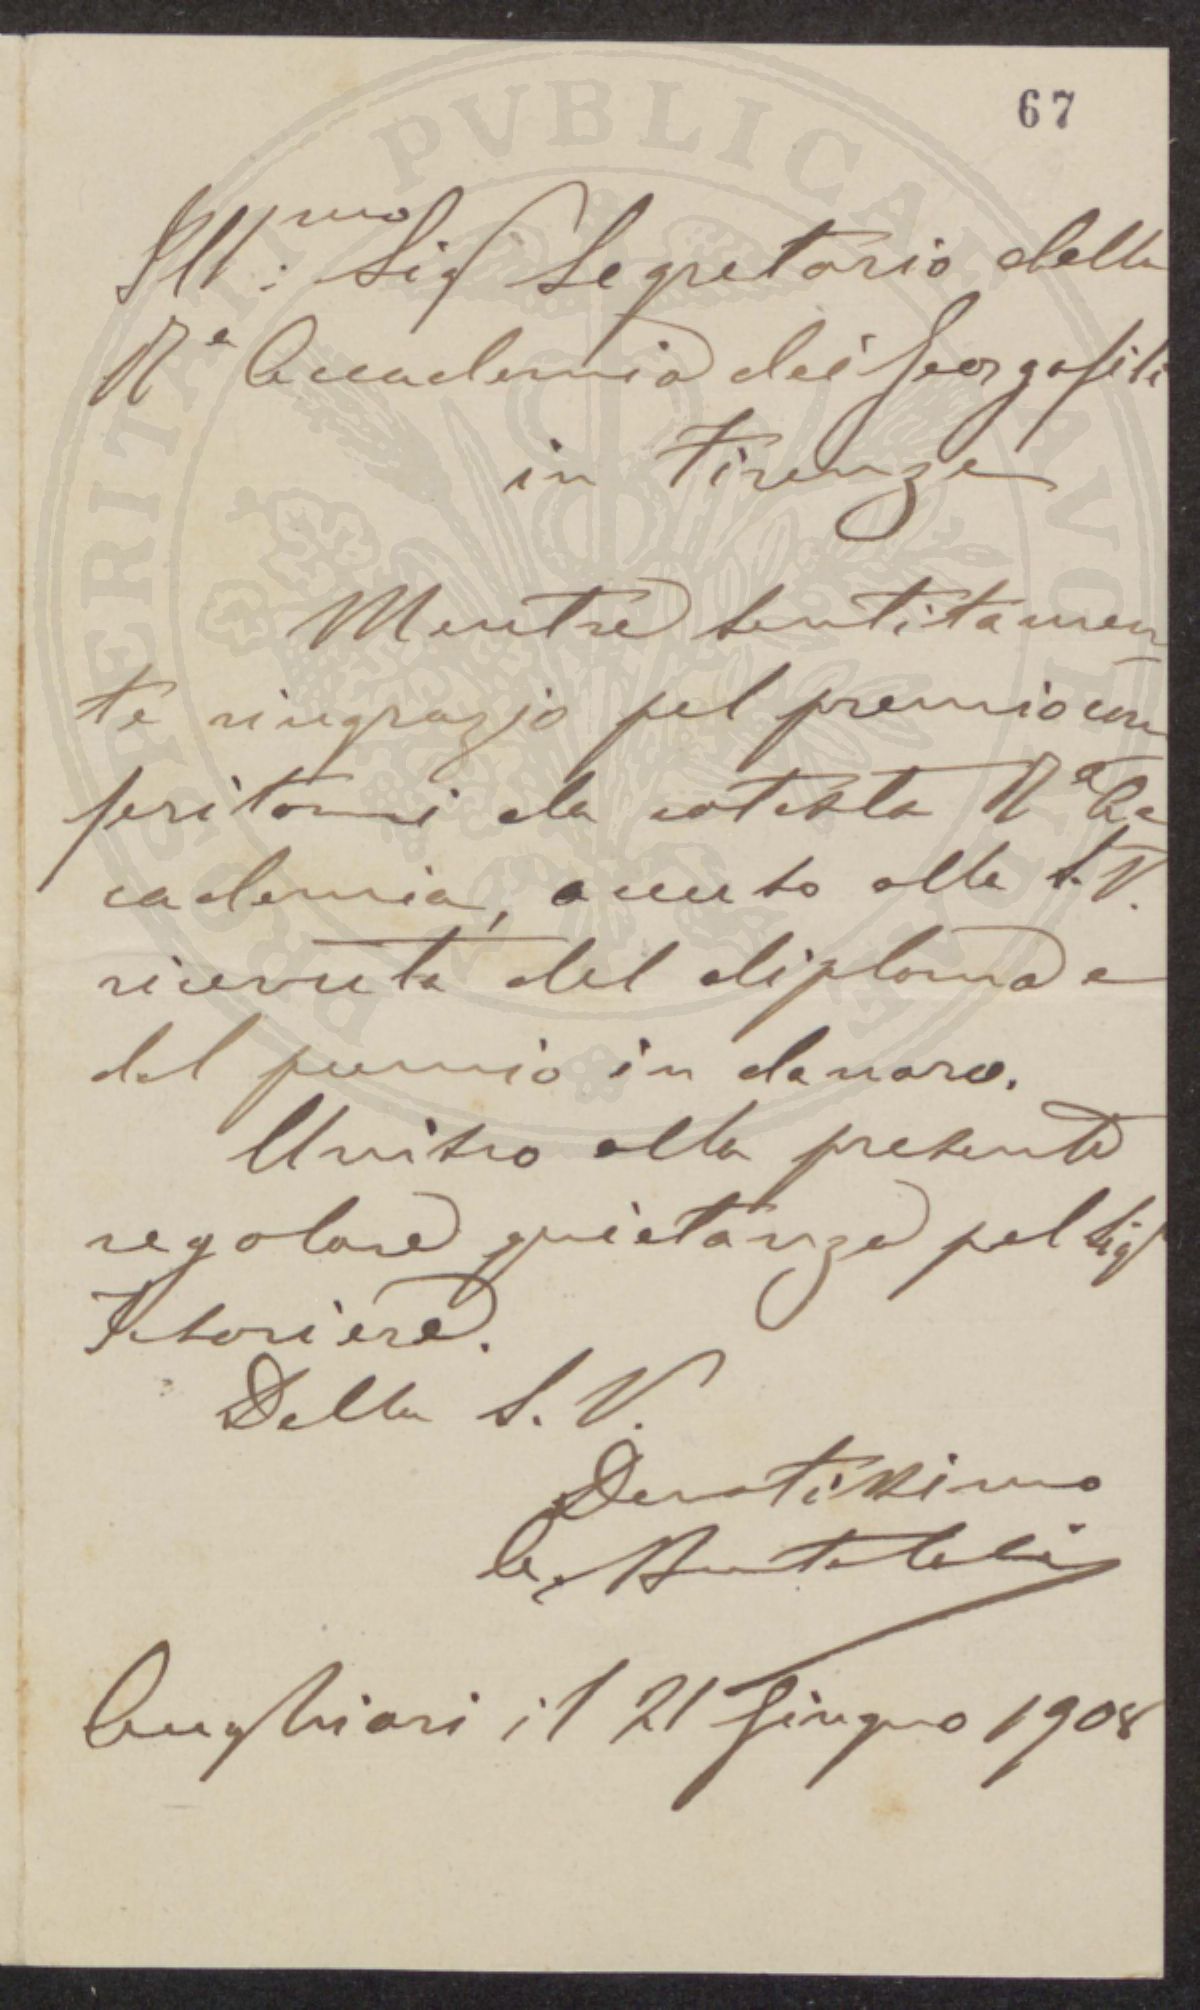 67
Ill:mo Sig Segretario della
Ra Accademia dei Georgofili
in Firenze
Mentre sentitamen
te ringrazio pel premio con
feritomi da cotesta Ra Ac
cademia, accuso alla S. V.
ricevuta del diploma e
del premio in danaro.
Unisco alla presente
regolare quietanza pel Sigr
Tesoriere.
Della S. V.
Devotissimo
Anghiari il 21 Giugno 1908
PROSPERITATI PVBLICAE